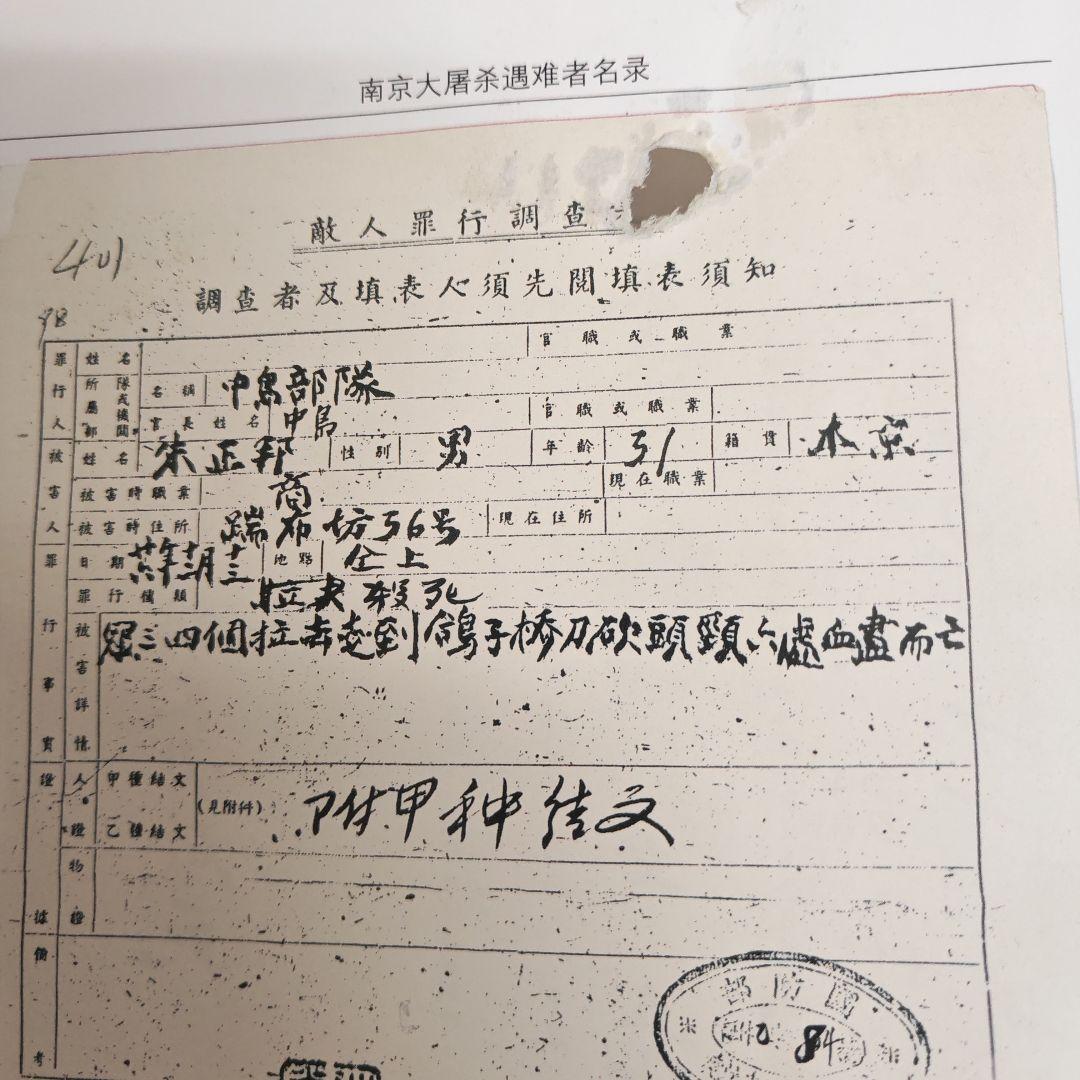 南京大屠杀遇难者名录
敵人罪行調查
401
調查者及填表人須先閱填表須知
罪行人 姓名 官職或職業
所屬部隊或機關 名稱 中島部隊
官長姓名 中島 官職或職業
被害人 姓名 朱正邦 性別 男 年齡 31 籍貫 木京
被害時職業 商 現在職業
被害時住所 踹布坊36号 現在住所
罪行事實 日期 廿六年十二月十三 地點 仝上
罪行種類 拉夫殺死
被害詳情 三四個拉 到鴿子橋刀砍頭頸 血盡而亡
證據 人證 甲種結文 乙種結文 (見附件) 附甲种结文
物證
備考
國防部
84